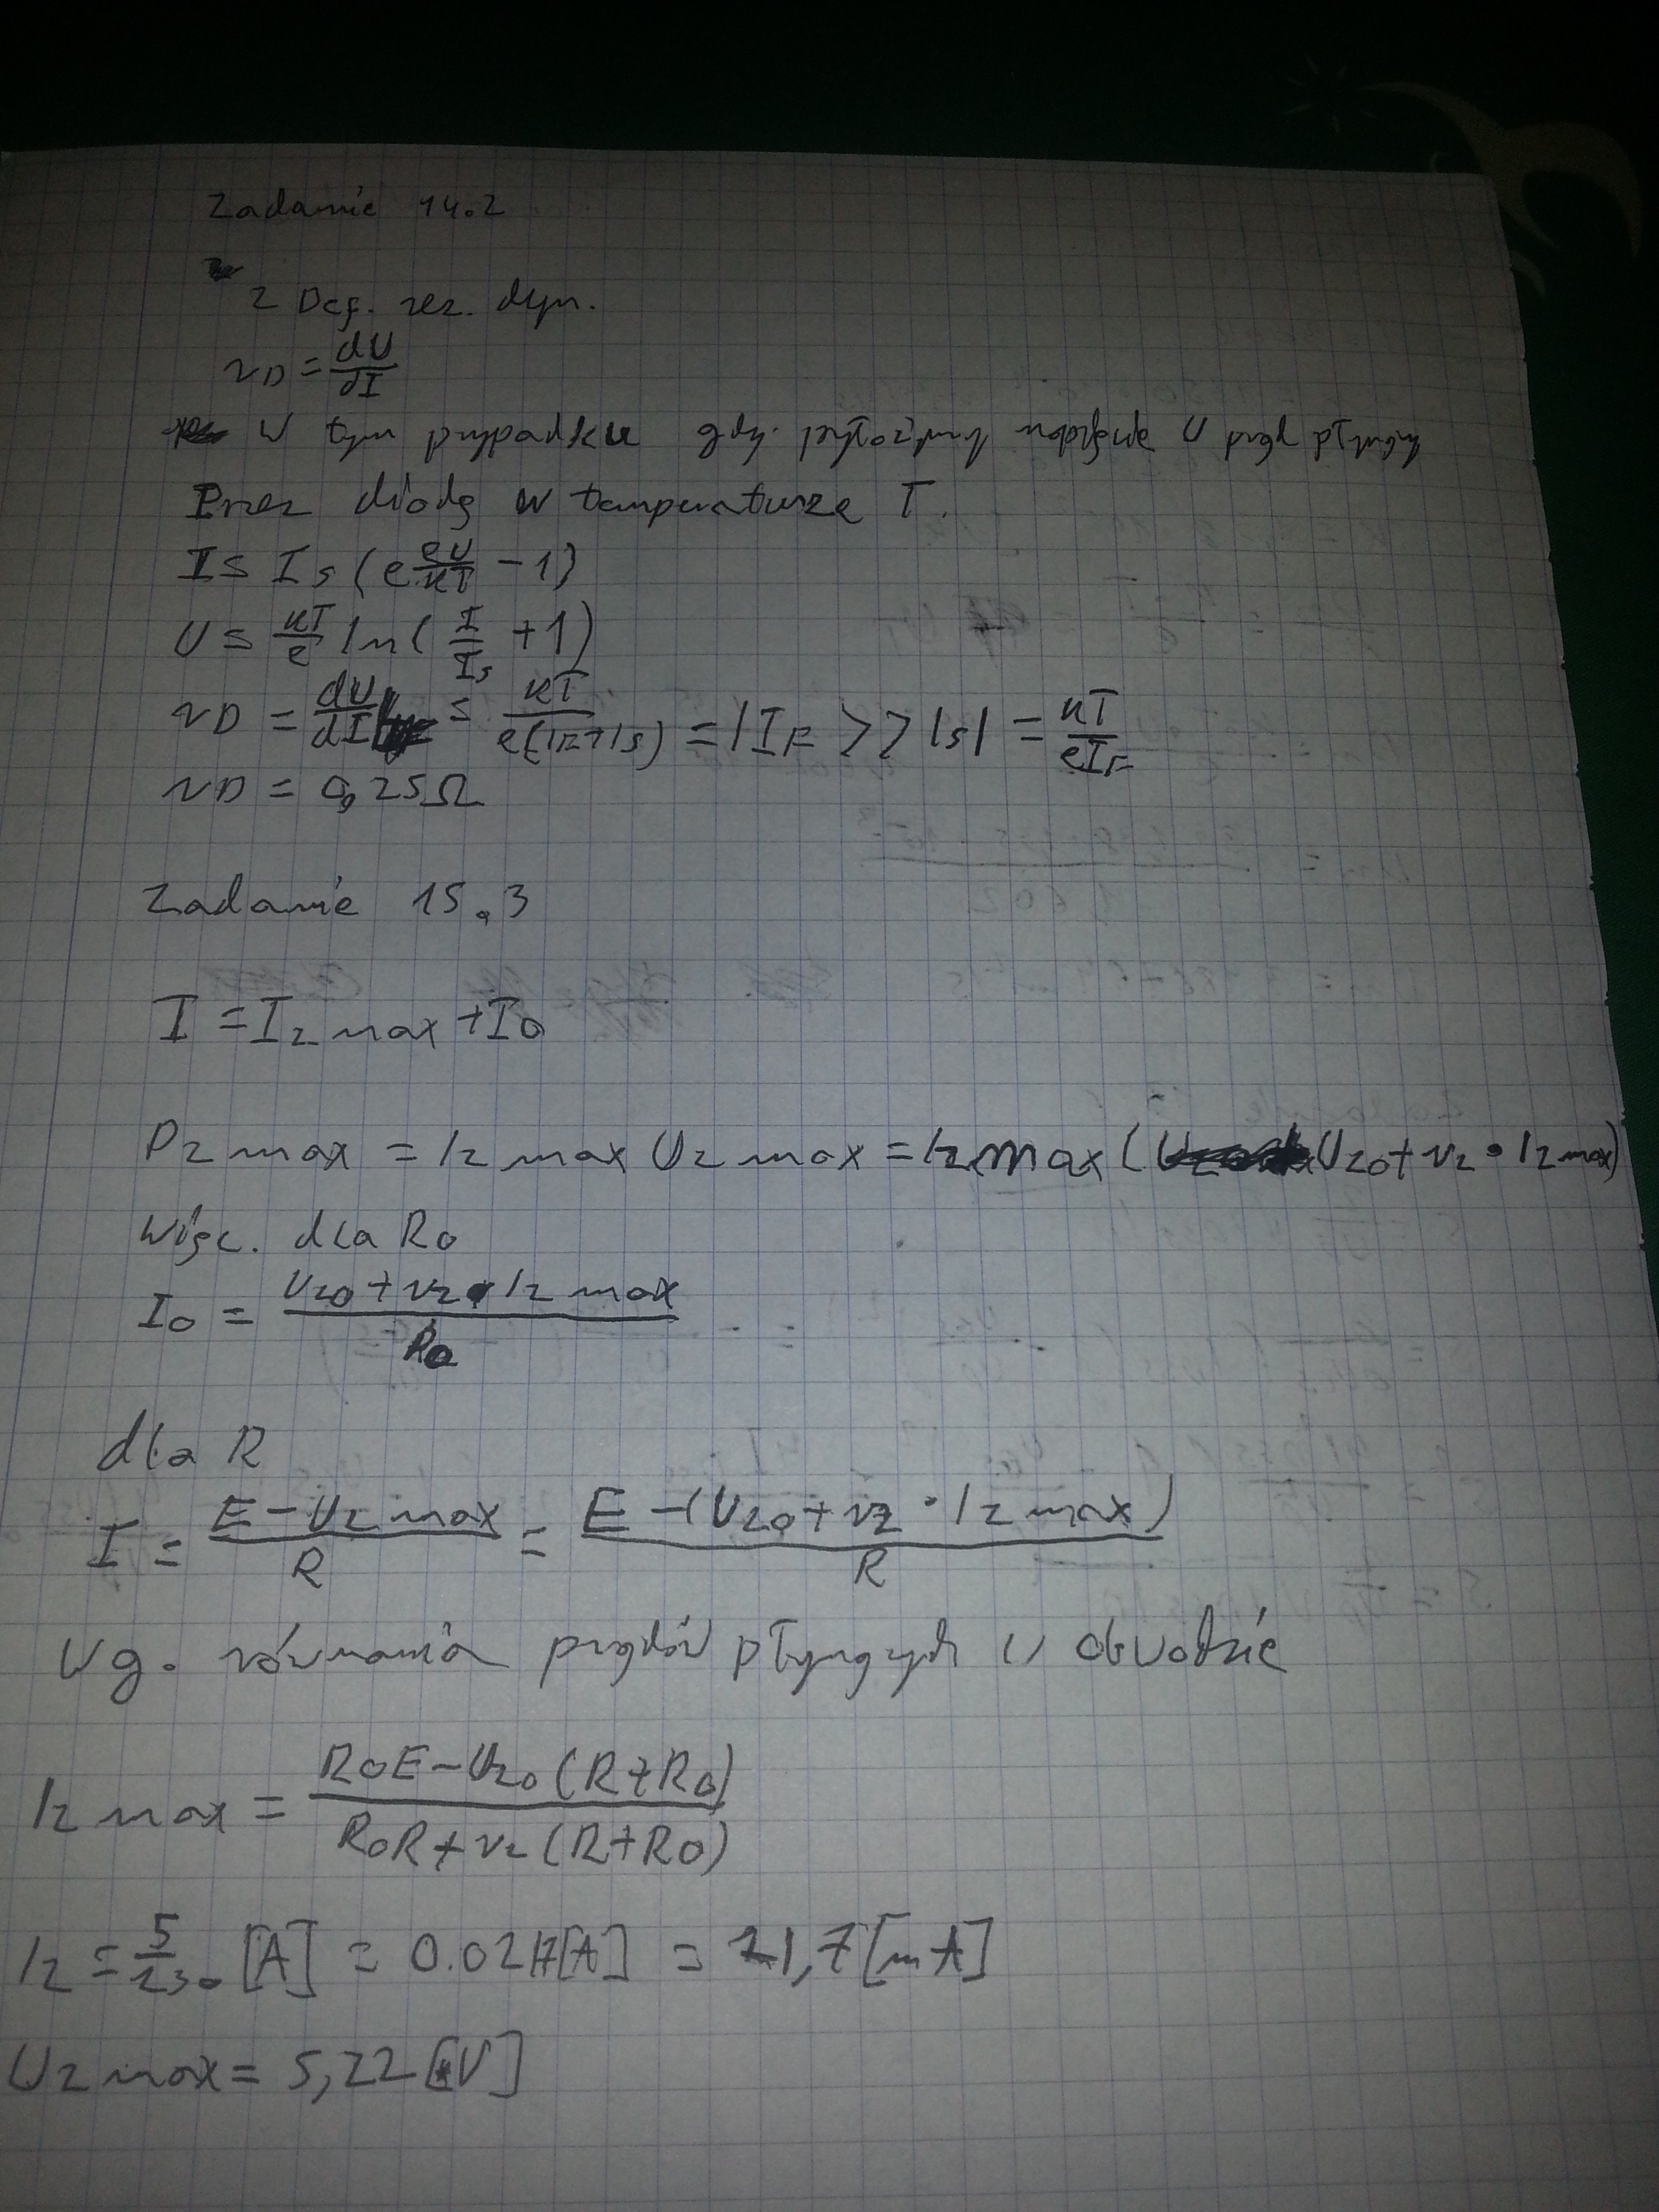 Zadanie 14.2
z Def. rez. dyn.
rD = dU/dI
w tym przypadku gdy przyłożymy napięcie U prąd płynący
Przez diodę w temperaturze T.
I = Is (e^(eU/kT) - 1)
U = kT/e ln( I/Is + 1)
rD = dU/dI = kT/e(IF+Is) = |IF >> Is| = kT/eIF
rD = 0,25Ω
Zadanie 15.3
I = Iz max + I0
Pz max = Iz max Uz max = Iz max (Uz0 + rz • Iz max)
więc. dla R0
I0 = Uz0 + rz • Iz max / R0
dla R
I = E - Uz max / R = E - (Uz0 + rz • Iz max) / R
wg. równania prądów płynących w obwodzie
Iz max = R0E - Uz0 (R + R0) / R0R + rz (R + R0)
Iz = 5/230 [A] = 0.0217[A] = 21,7 [mA]
Uz max = 5,22 [V]